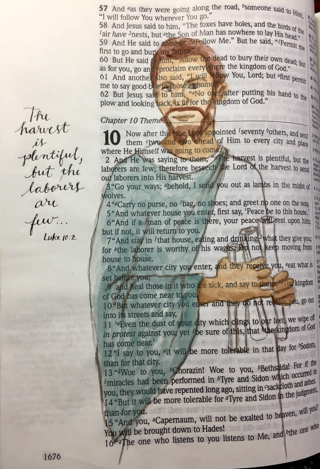 57 And as they were going along the road, someone said to Him,
"I will follow You wherever You go."
58 And Jesus said to him, "The foxes have holes, and the birds of the
air have nests, but the Son of Man has nowhere to lay His head."
59 And He said to Me." But he said, "Permit
first to go and bury
60 But He said Allow dead to bury their own dead; but
as for you, go and proclaim everywhere the kingdom of God."
61 And another also said, I will You, Lord; but first permit
me to say good-b
62 But Jesus said to him, "No one, after putting his hand to the
plow and looking back, is fit for the kingdom of God."
Chapter 10 Theme
The
harvest
is
plentiful,
but the
laborers
are
few...
Luke 10:2
10 Now after this appointed seventy others, and sent
them to every city and place
where He Himself was going to come.
2 And He was saying to them, harvest is plentiful, but the
laborers are few; therefore beseech the Lord of the harvest to send
out laborers into His harvest.
3 "Go your ways; behold, I send you out as lambs in the midst of
wolves.
4 "Carry no purse, no bag, no shoes; and greet no one on the way.
5 "And whatever house you enter, first say, 'Peace be to this house.'
6 "And if a man of peace is there, your peace will rest upon him;
but if not, it will return to you.
7 "And stay in that house, eating and drinking what they give you;
for the laborer is worthy of his wages. Do not keep moving from
house to house.
8 "And whatever city you enter, and they receive you, eat what is
set before you;
9 and heal those in it who are sick, and say to them, kingdom
of God has come near to you.'
10 "But whatever city you enter and they do not receive you, go out
into its streets and say,
11 'Even the dust of your city which clings to our feet, we wipe off
in protest against you; yet be sure of this, that the kingdom of God
has come near.'
12 "I say to you, it will be more tolerable in that day for Sodom,
than for that city.
13 "Woe to you, Chorazin! Woe to you, Bethsaida! For if the
miracles had been performed in Tyre and Sidon which occurred in
you, they would have repented long ago, sitting in sackcloth and ashes.
14 "But it will be more tolerable for Tyre and Sidon in the judgment,
than for you.
15 "And you, Capernaum, will not be exalted to heaven, will you?
You will be brought down to Hades!
16 "The one who listens to you listens to Me, and the one who
1676